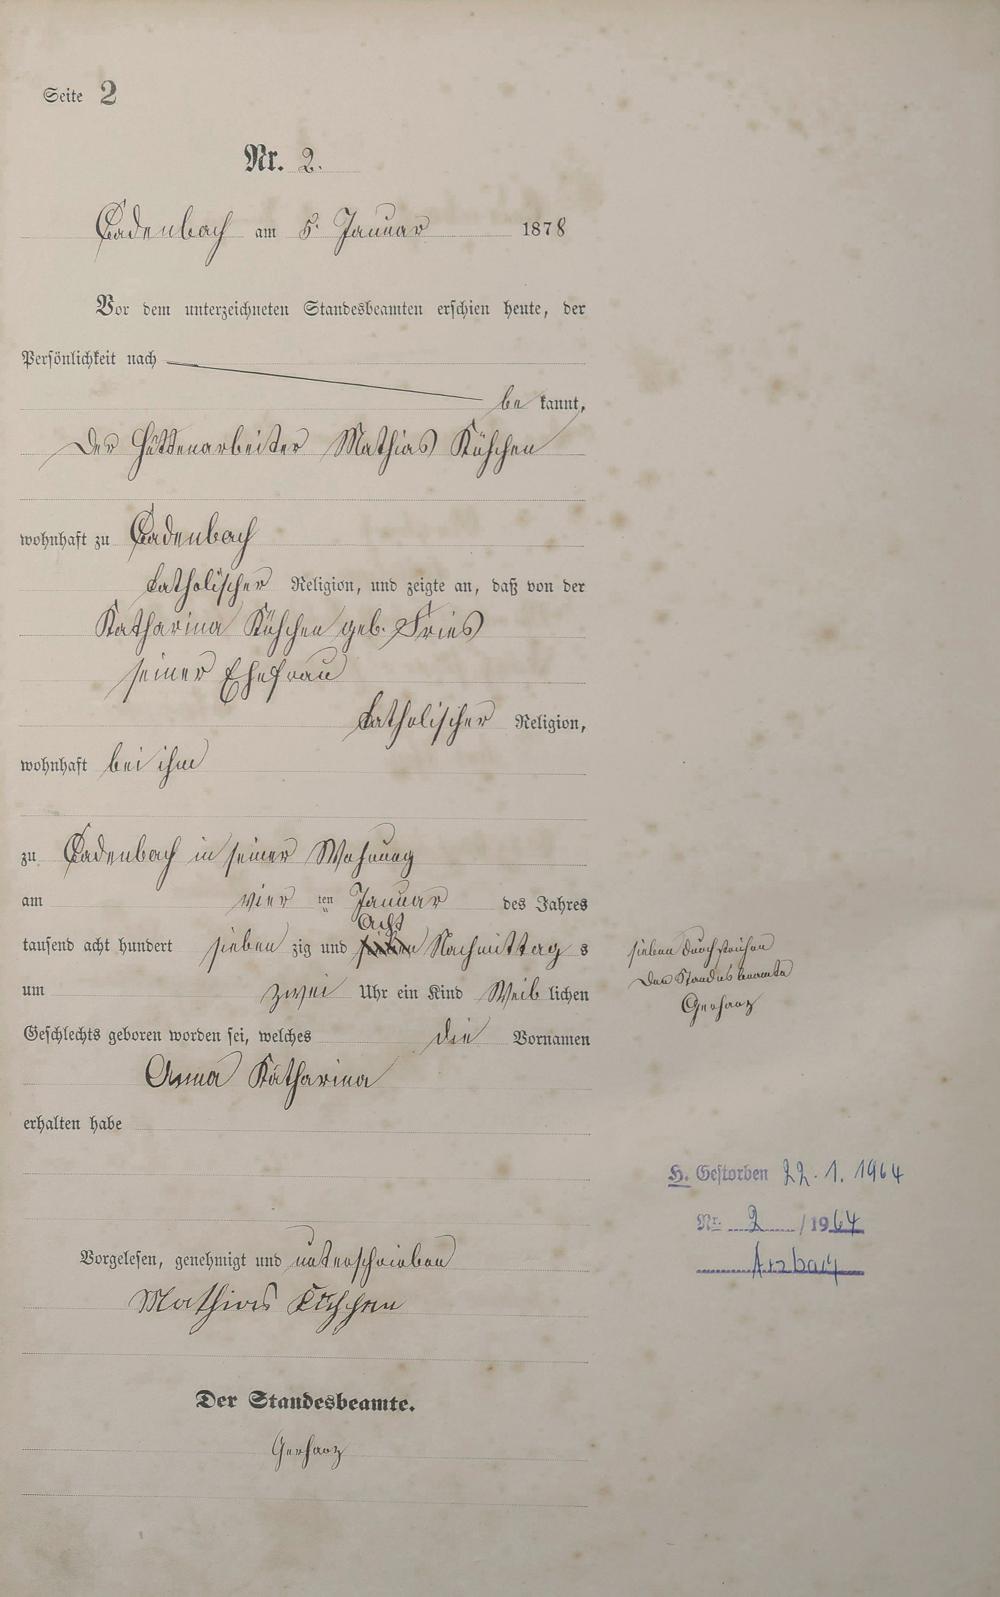 Seite 2
Nr. 2.
Cadenbach am 5. Januar 1878
Vor dem unterzeichneten Standesbeamten erschien heute, der
Persönlichkeit nach
be kannt,
Der Hüttenarbeiter Mathias
wohnhaft zu Cadenbach
katholischer Religion, und zeigte an, daß von der
Katharina geb. Fries
seiner Ehefrau
katholischer Religion,
wohnhaft bei ihm
zu Cadenbach in seiner Wohnung
am vier ten Januar des Jahres
acht
tausend acht hundert sieben zig und sieben Nachmittag s
um zwei Uhr ein Kind Weib lichen
Geschlechts geboren worden sei, welches die Vornamen
Anna Katharina
erhalten habe
Vorgelesen, genehmigt und unterschrieben
Mathias
Der Standesbeamte.
Gerharz
sieben durchstrichen
Der Standesbeamte
Gerharz
H. Gestorben 22.1.1964
Nr. 2 /1964
Arzbach